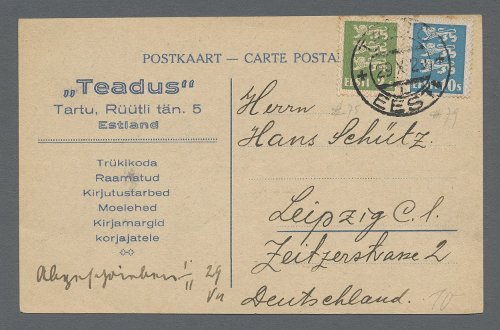 POSTKAART — CARTE POSTA
„Teadus“
Tartu, Rüütli tän. 5
Estland
Trükikoda
Raamatud
Kirjutustarbed
Moelehed
Kirjamargid
korjajatele
EESTI
EES
10s
#75
#79
Herrn
Hans Schütz.
Leipzig C. 1.
Zeitzerstrasse 2
Deutschland.
Abgeschrieben
29
10